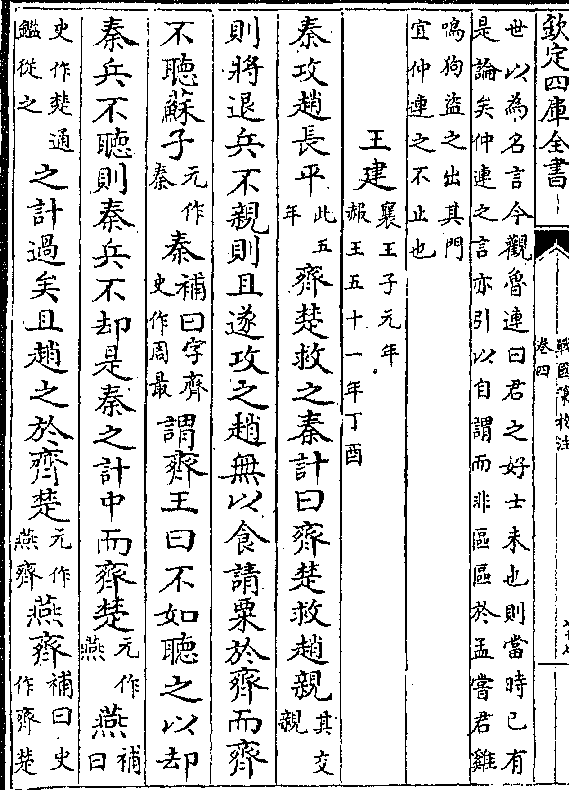 欽定四庫全書
戰國策校注
卷四
世以為名言今觀魯連曰君之好士未也則當時已有
是論矣仲連之言亦引以自謂而非區區於孟嘗君雞
鳴狗盜之出其門
宜仲連之不止也
王建襄王子元年
赧王五十一年丁酉
秦攻趙長平此五年齊楚救之秦計曰齊楚救趙親其交親
則將退兵不親則且遂攻之趙無以食請粟於齊而齊
不聽蘇子元作秦秦補曰字齊史作周最謂齊王曰不如聽之以却
秦兵不聽則秦兵不却是秦之計中而齊楚元作燕燕補曰
史作楚通鑑從之之計過矣且趙之於齊楚元作燕齊燕齊補曰史作齊楚